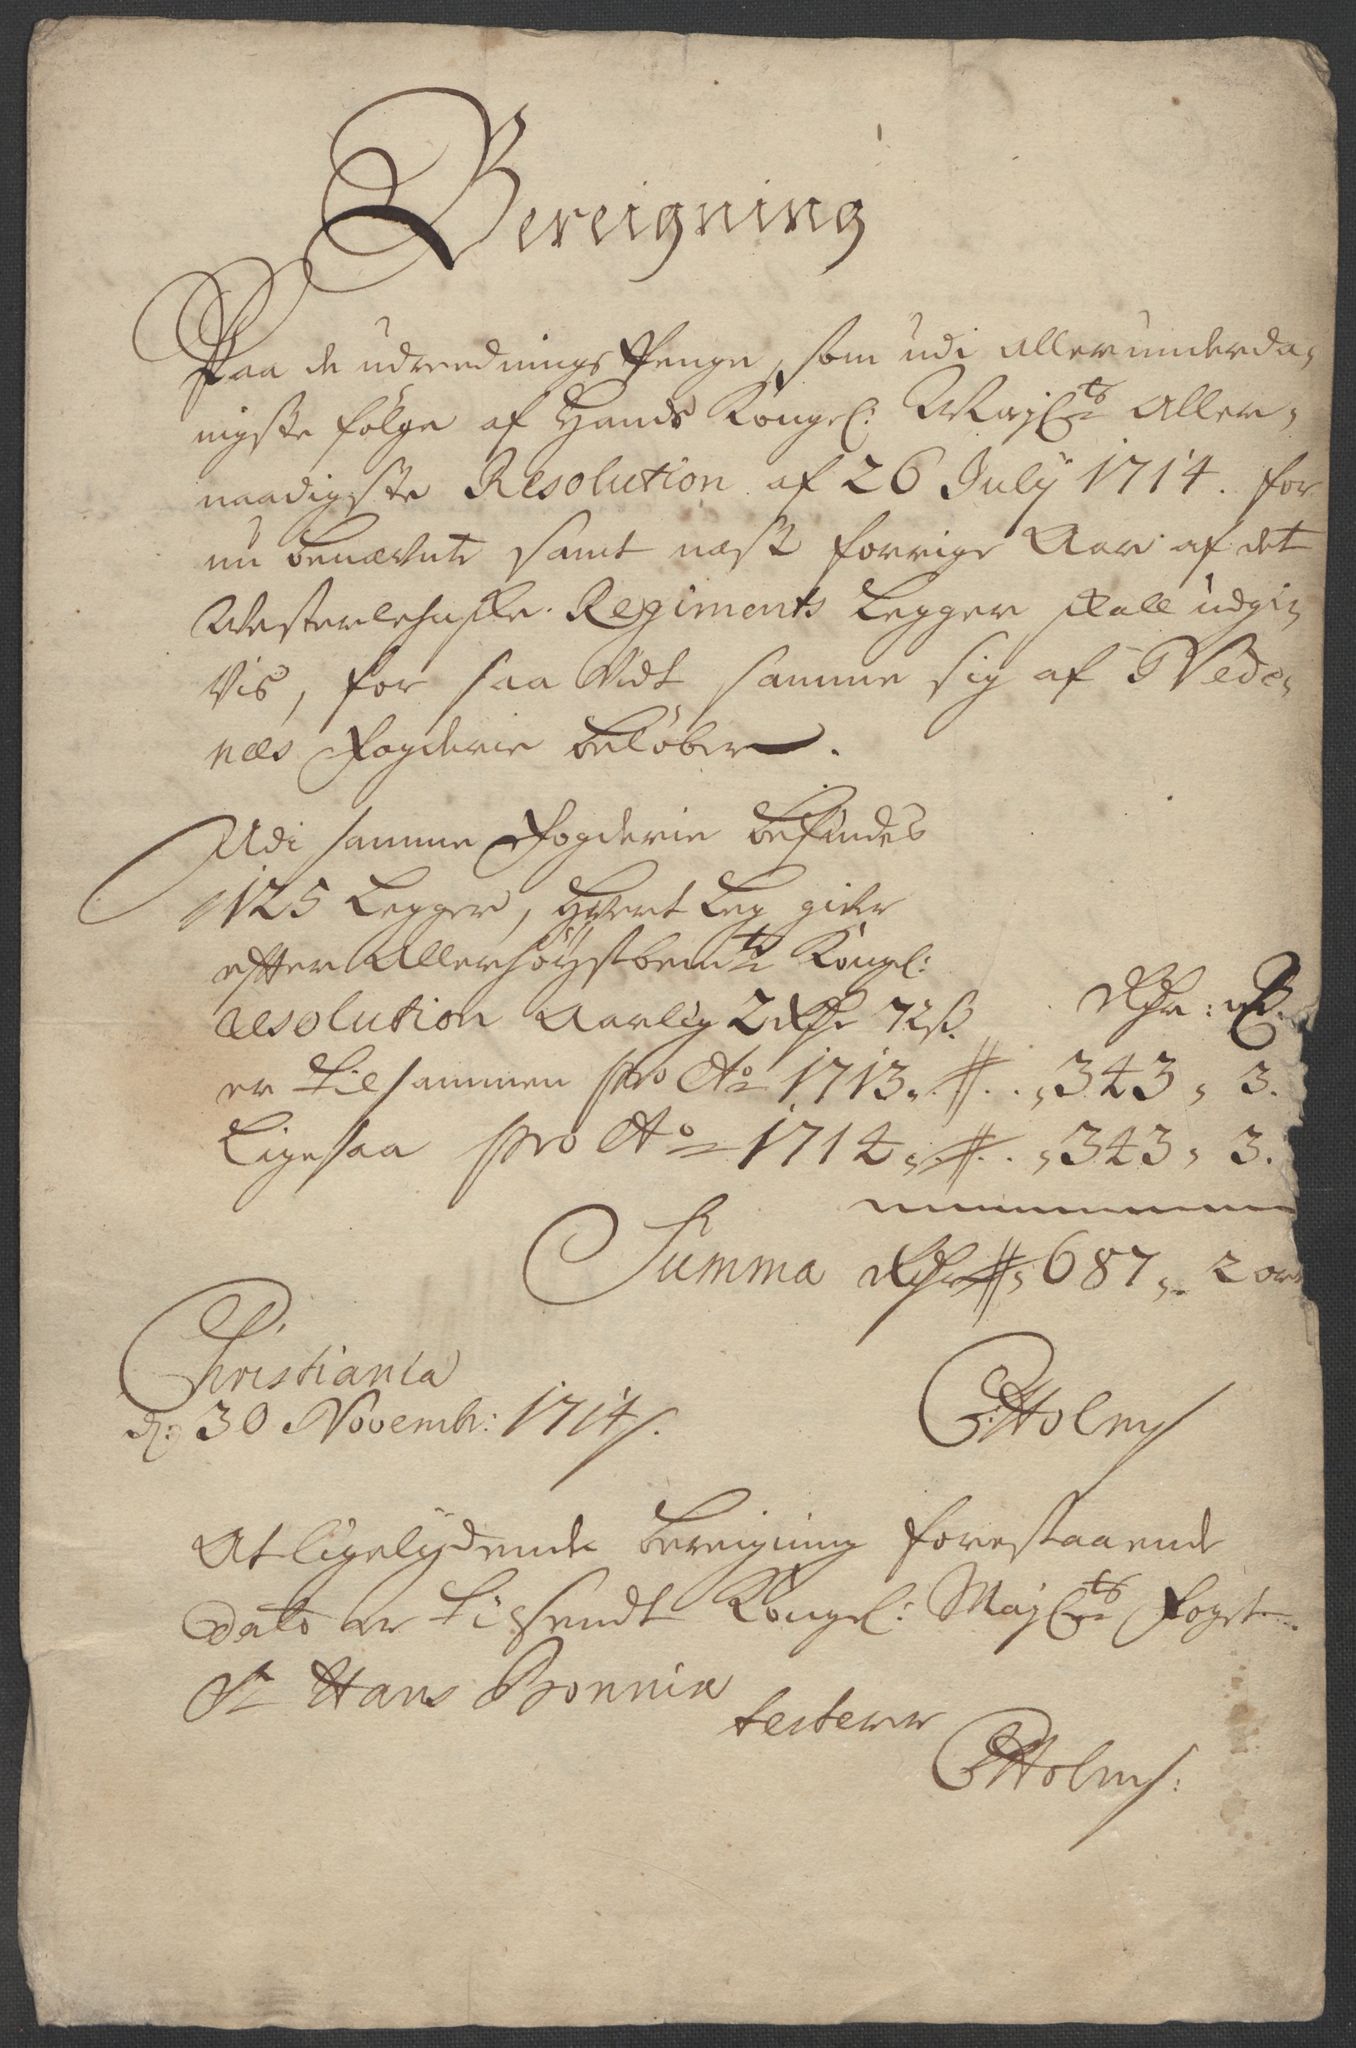 Bereigning
Paa de udreednings Penge, som udi allerunderda„
nigste følge af Hands Kongel: Maj:ts Aller„
naadigste Resolution af 26 July 1714. for
nu benævnte samt næst forrige Aar af det
Westerlehnske Regiments Legger skall udgi„
vis, for saa vidt samme sig af Nede„
næs Fogderie beløber.
Udi samme Fogderie befindes
125 Legger, hvert Leg giver
efter Allerhøystbemte Kongel:
resolution Aarlig 2 Rdr 72 ß. Rdr: ort.
er tilsammen pro Ao 1713 „ 343 „ 3.
Ligesaa pro Ao 1714 „ 343 „ 3.
Summa Rdr „ 687 „ 2 ort
Christiania
d: 30 Novembr: 1714. CHolm
At ligelydende bereigning forestaaende
Dato er tilsendt Kongel: Maj:ts Foget
Sr Hans Bonnix
testerer
CHolm: